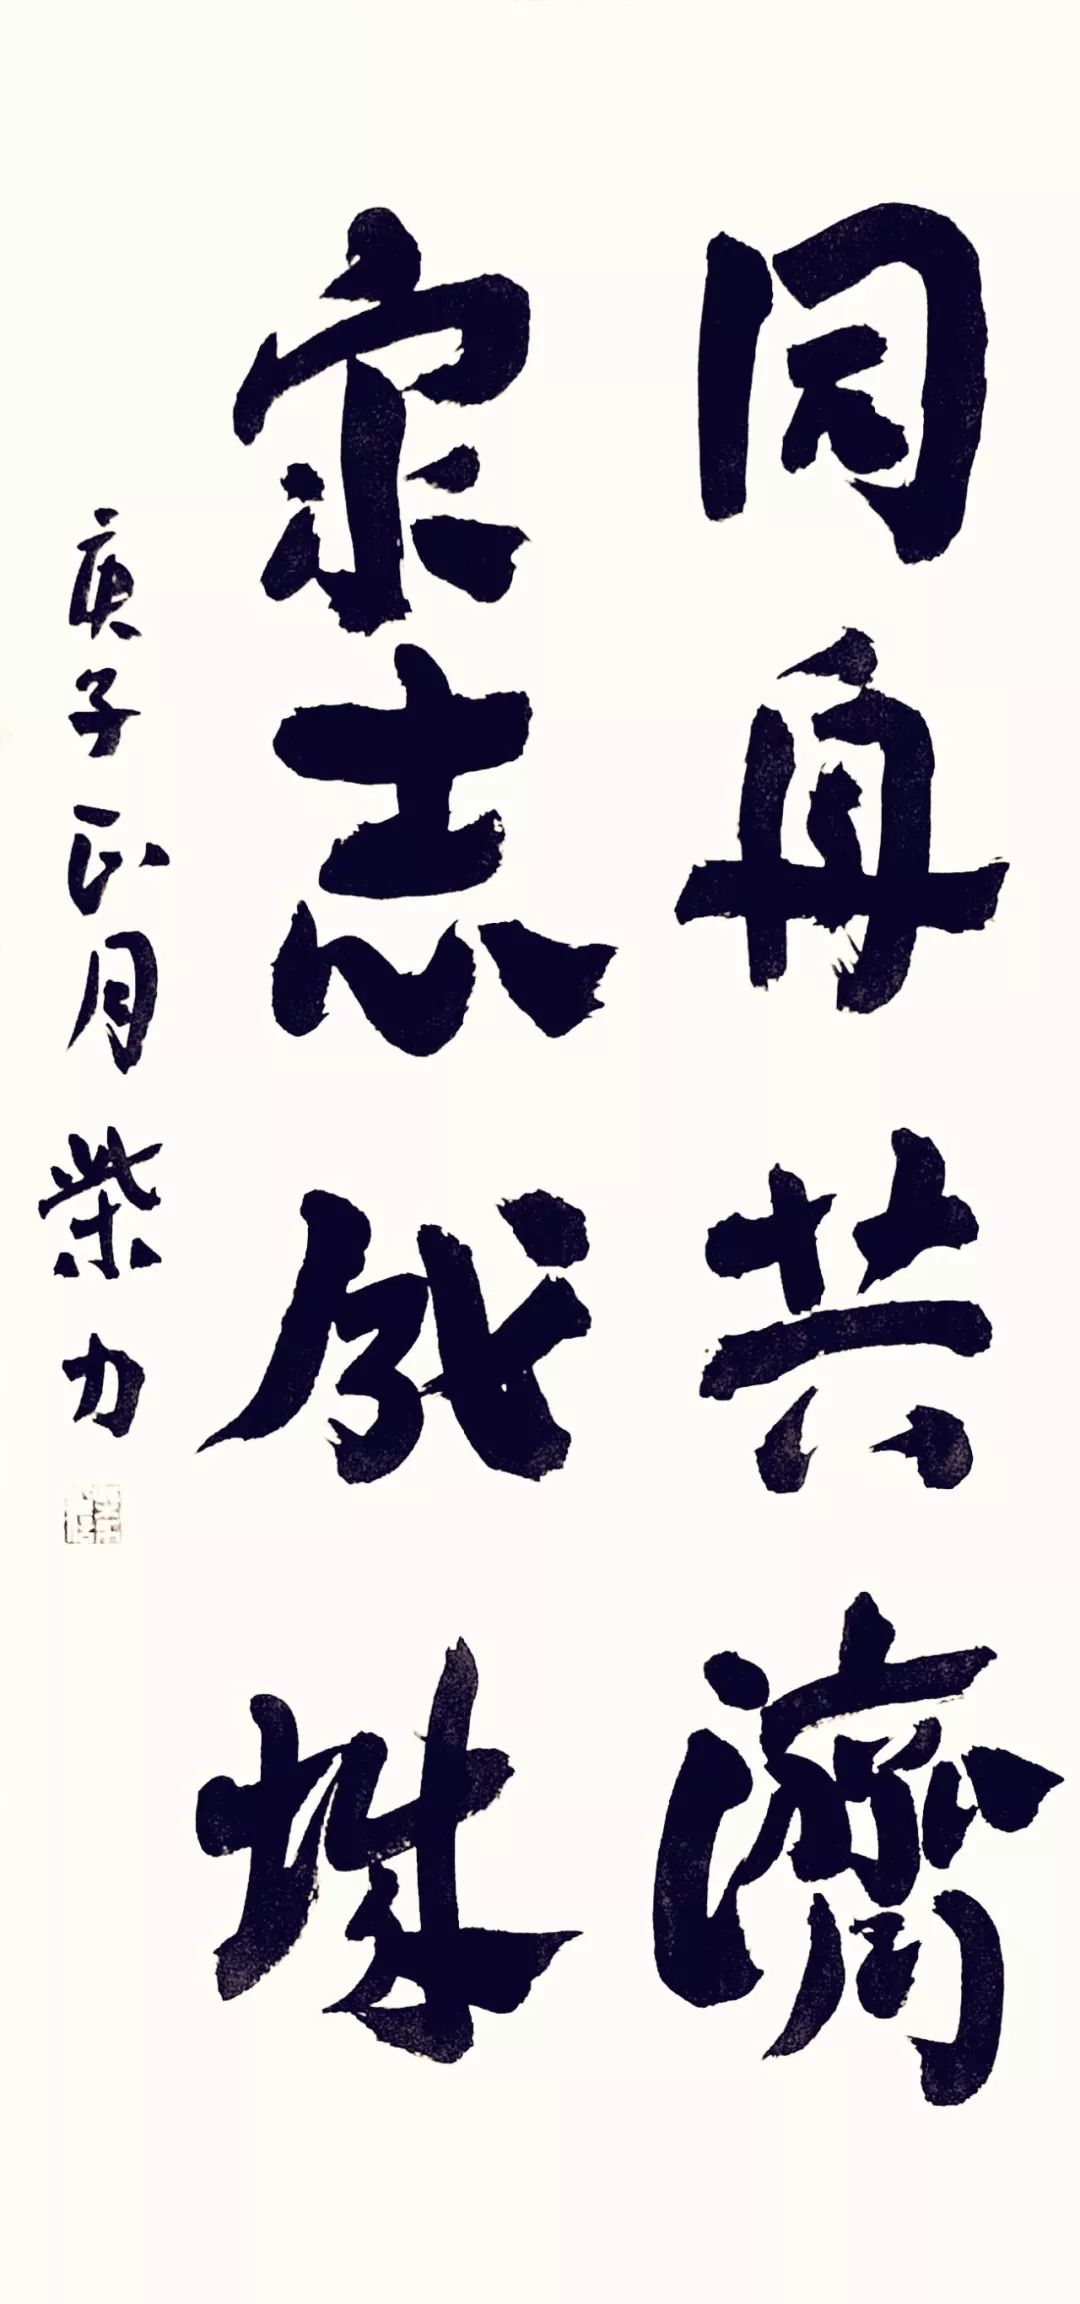 同舟共濟
衆志成城
庚子正月 柴力